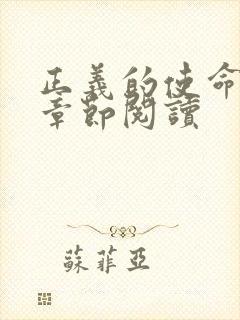 正義的使命
章節閱讀
蘇菲亞